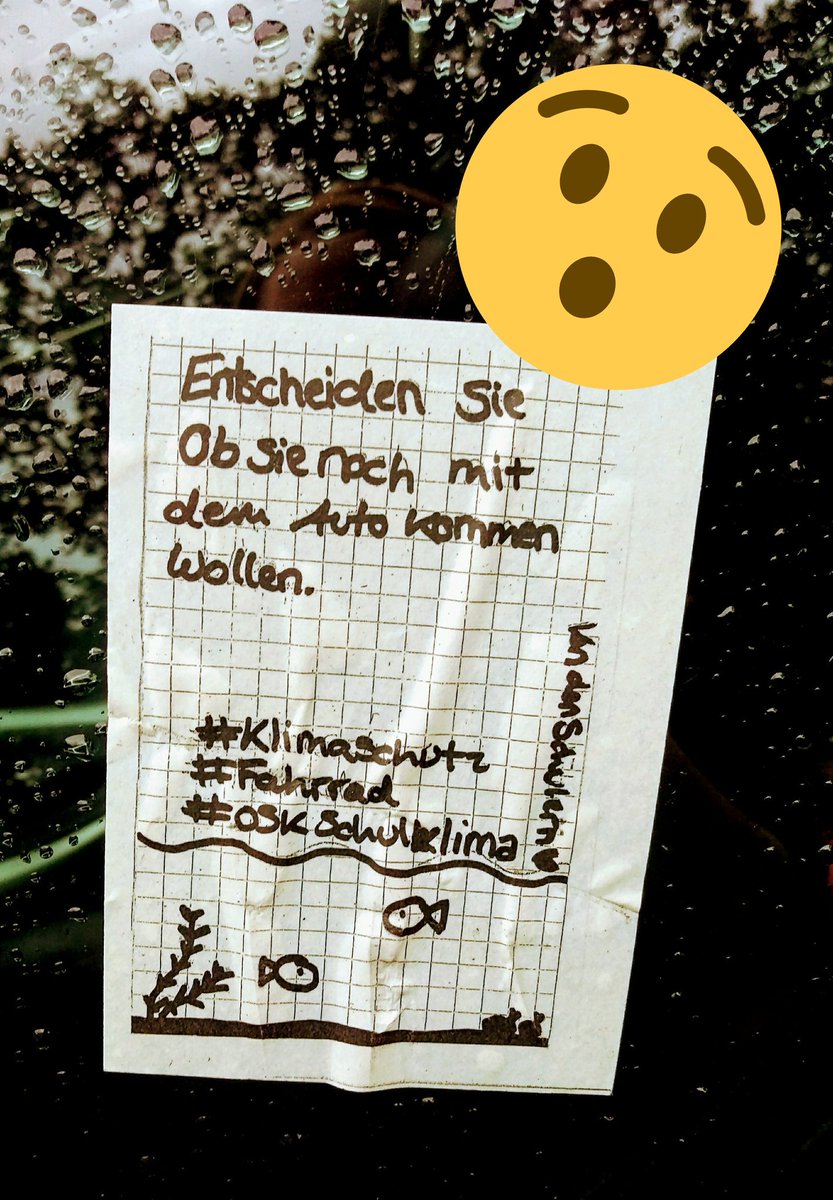 Entscheiden Sie
Ob sie noch mit
dem Auto kommen
Wollen.
#Klimaschutz
#Fahrrad
#OSKSchulklima